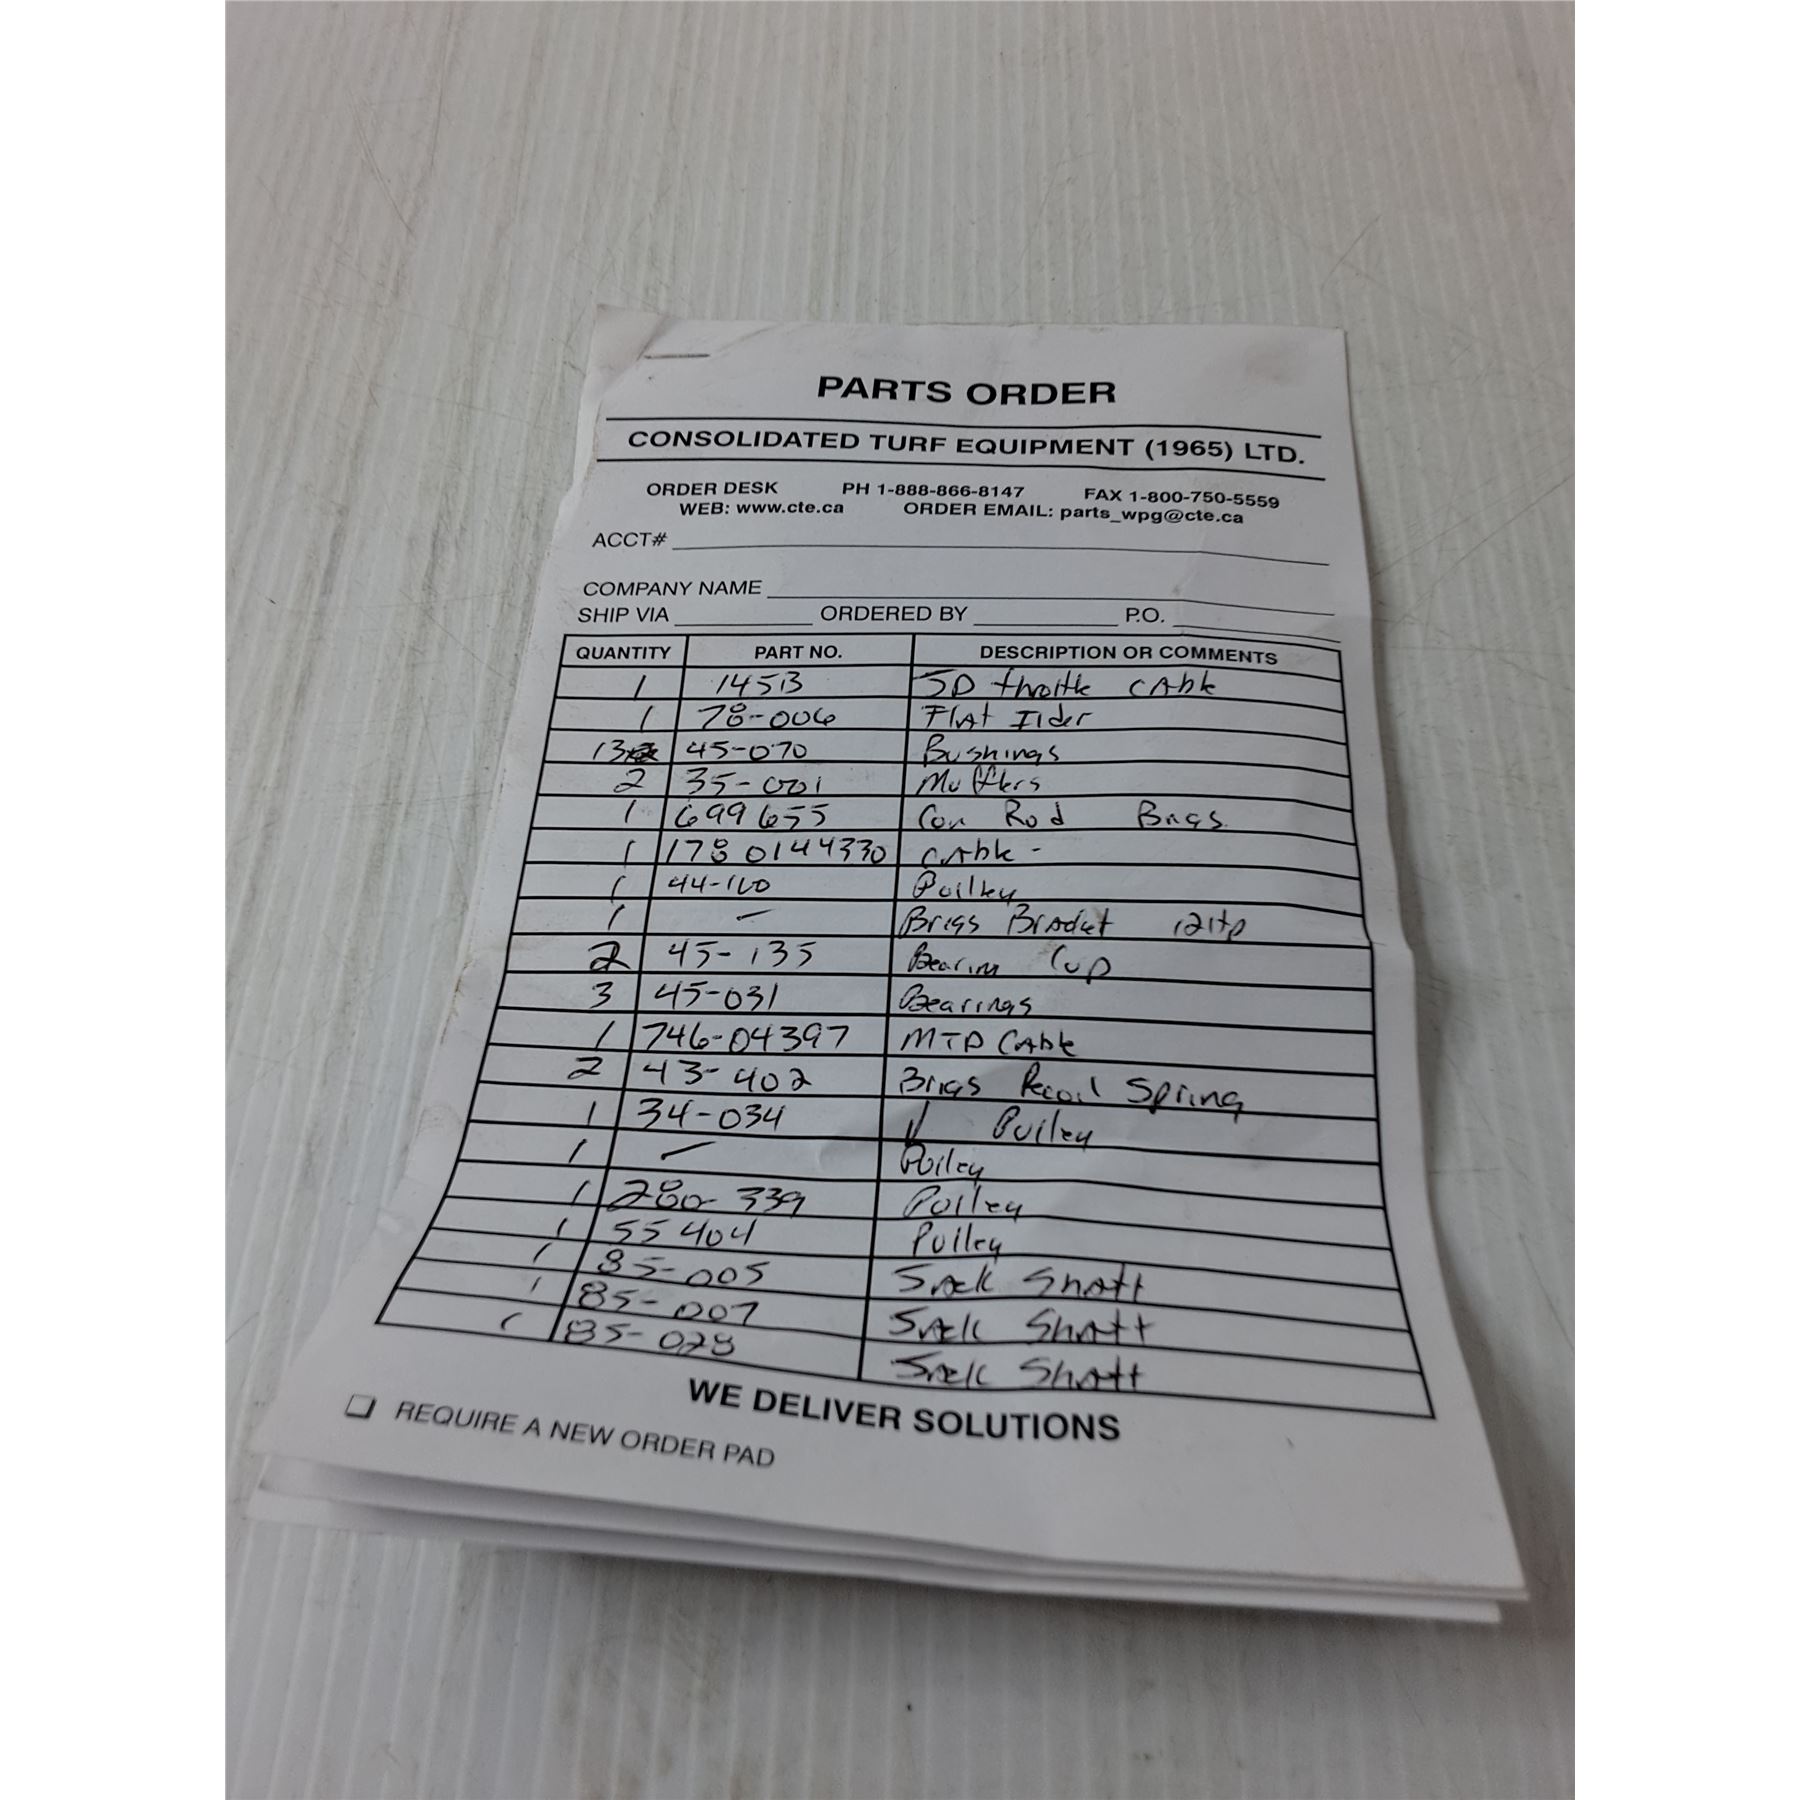 PARTS ORDER
CONSOLIDATED TURF EQUIPMENT (1965) LTD.
ORDER DESK PH 1-888-866-8147 FAX 1-800-750-5559
WEB: www.cte.ca ORDER EMAIL: parts_wpg@cte.ca
ACCT#
COMPANY NAME
SHIP VIA ORDERED BY P.O.
QUANTITY PART NO. DESCRIPTION OR COMMENTS
1 throttle cAble
1 78-006 FlAt Ilder
13 45-070 Bushings
2 35-001 Mufflers
1 699655 Con Rod
1 1780144330 cAble -
1 Pulley
1 — Brigs 12Hp
2 45-135 Cup
3 45-031 Bearings
1 746-04397 MTD CAble
2 43-402 Brigs Recoil Spring
1 34-034 Pulley
1 — Pulley
1 280-339 Pulley
1 55404 Pulley
1 85-005 ShAft
1 85-007 ShAft
1 85-028 ShAft
WE DELIVER SOLUTIONS
REQUIRE A NEW ORDER PAD